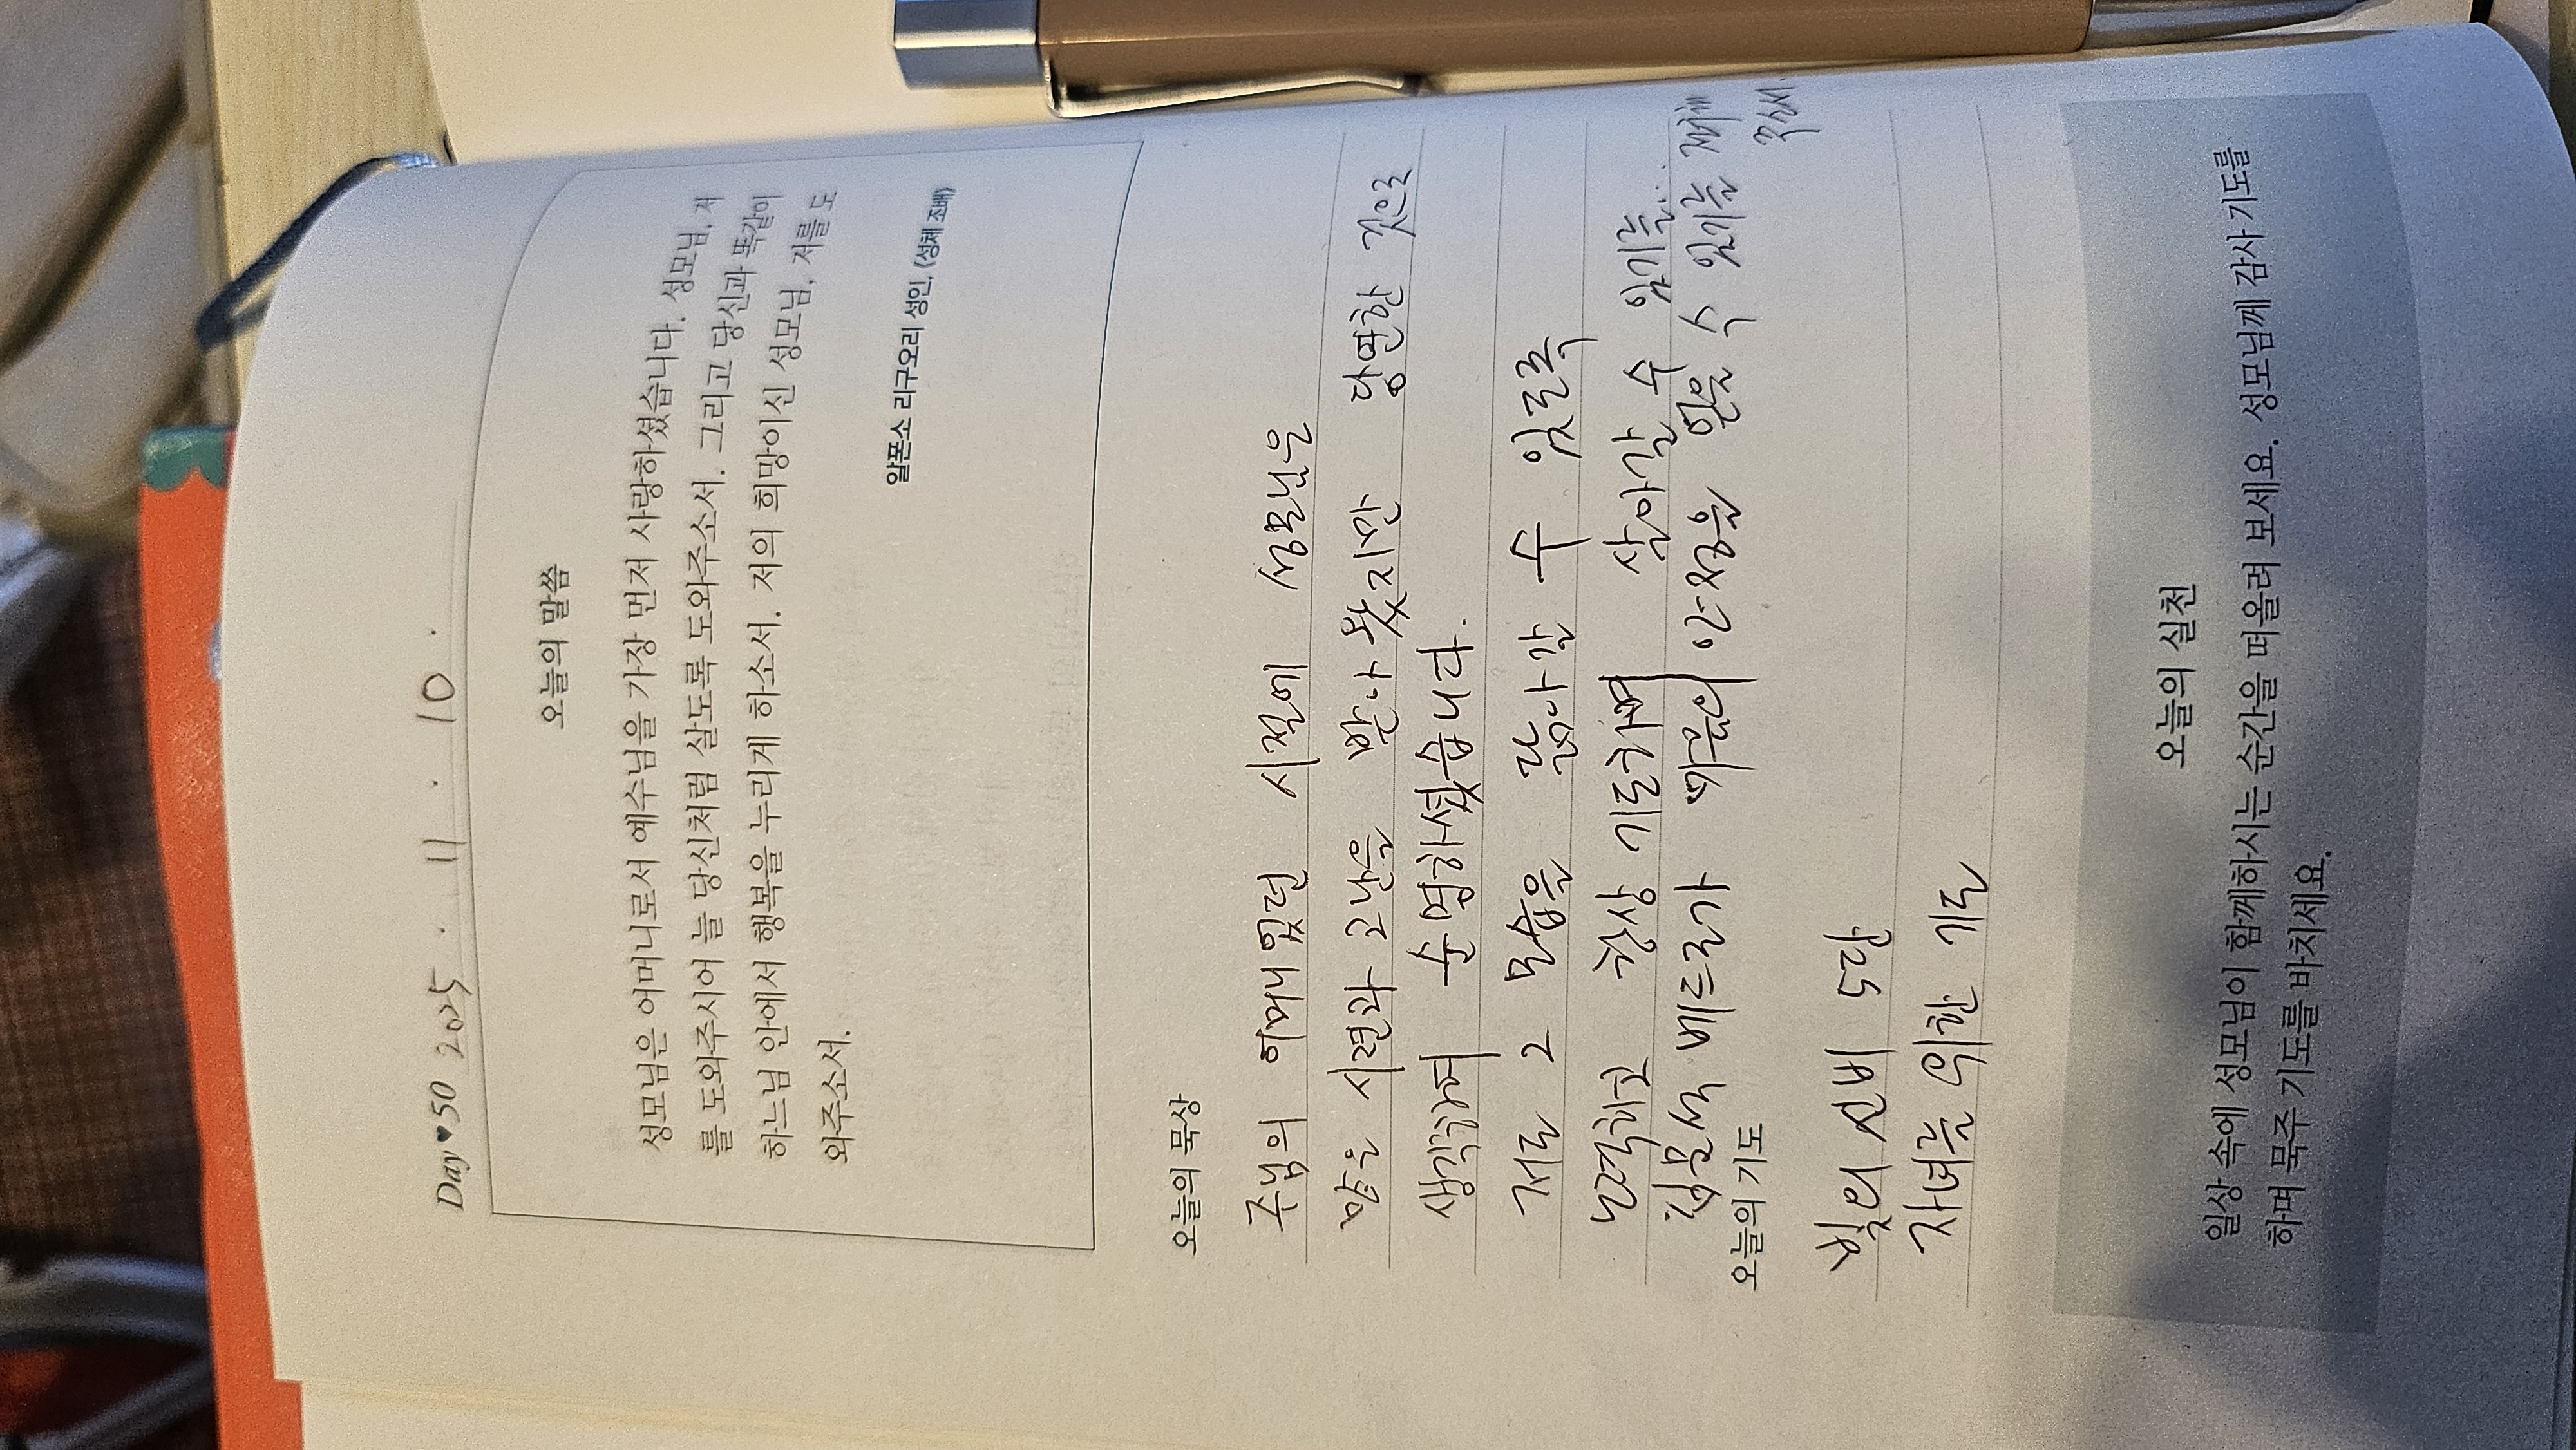 Day♥50 2025 . 11 . 10 .
오늘의 말씀
성모님은 어머니로서 예수님을 가장 먼저 사랑하셨습니다. 성모님, 저
를 도와주시어 늘 당신처럼 살도록 도와주소서. 그리고 당신과 똑같이
하느님 안에서 행복을 누리게 하소서. 저의 희망이신 성모님, 저를 도
와주소서.
알폰소 리구오리 성인, 《성체 조배》
오늘의 묵상
주님의 어머니였던 시절에 성모님은
많은 시련과 고난을 받아 왔지만 당연한 것으로
생각하며 순명하셨습니다.
저도 그 모습을 닮아갈 수 있도록
노력하고 항상 기도하며 살아갈 수 있기를...
베드로가 마음의 안정을 얻을 수 있기를
주세
오늘의 기도
빛의 신비 5단
자녀를 위한 기도
오늘의 실천
일상 속에 성모님이 함께하시는 순간을 떠올려 보세요. 성모님께 감사 기도를
하며 묵주 기도를 바치세요.